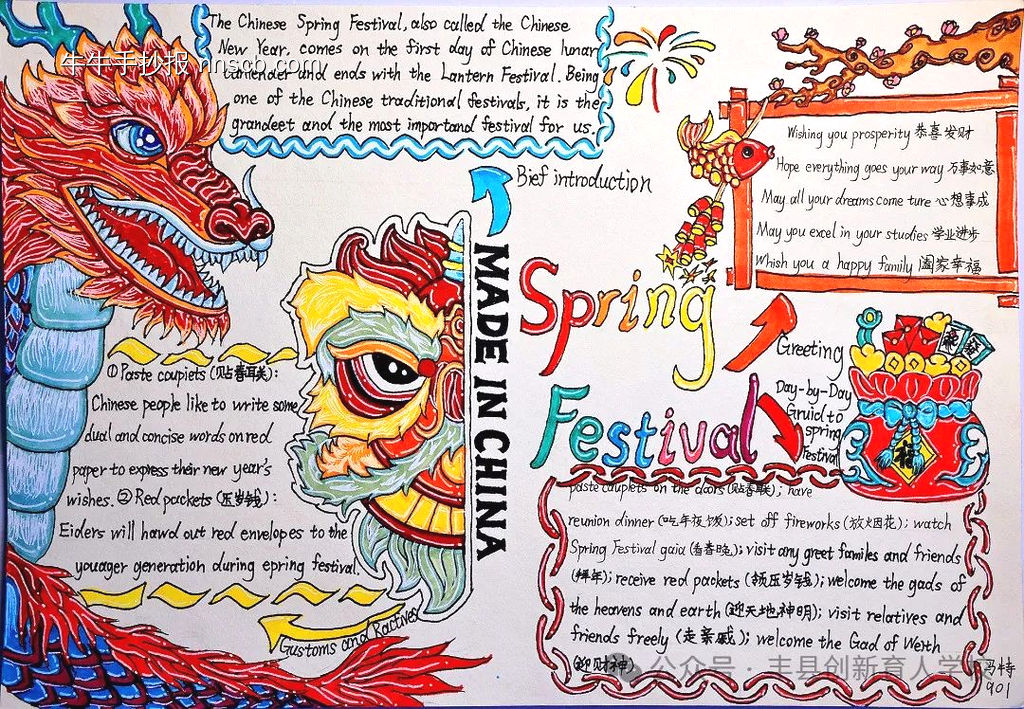 The Chinese Spring Festival, also called the Chinese
New Year, comes on the first day of Chinese hunar
牛牛手抄报 nnscb.com
and ends with the Lantern Festival. Being
one of the Chinese traditional festivals, it is the
grandeet and the most importand festival for us.
Bief introduction
Wishing you prosperity 恭喜发财
Hope everything goes your way 万事如意
May all your dreams come ture 心想事成
May you excel in your studies 学业进步
Whish you a happy family 阖家幸福
MADE IN CHINA
Spring
Festival
Greeting
Day-by-Day
Gruid to
spring
festival
福
① Paste coupiets (贴春联):
Chinese people like to write some
dual and concise words on red
paper to express their new year's
wishes. ② Red packets (压岁钱):
Eiders will hawd out red envelopes to the
youager generation during epring festival.
Gustoms and Ractives
paste cauplets on the doors (贴春联); have
reunion dinner (吃年夜饭); set off fireworks (放烟花); watch
Spring Festival gaia (看春晚); visit any greet familes and friends
(拜年); receive red packets (领压岁钱); welcome the gads of
the heavens and earth (迎天地神明); visit relatives and
friends freely (走亲戚); welcome the Gad of Werth
(迎财神)
公众号 · 丰县创新育人学校
冯特
901